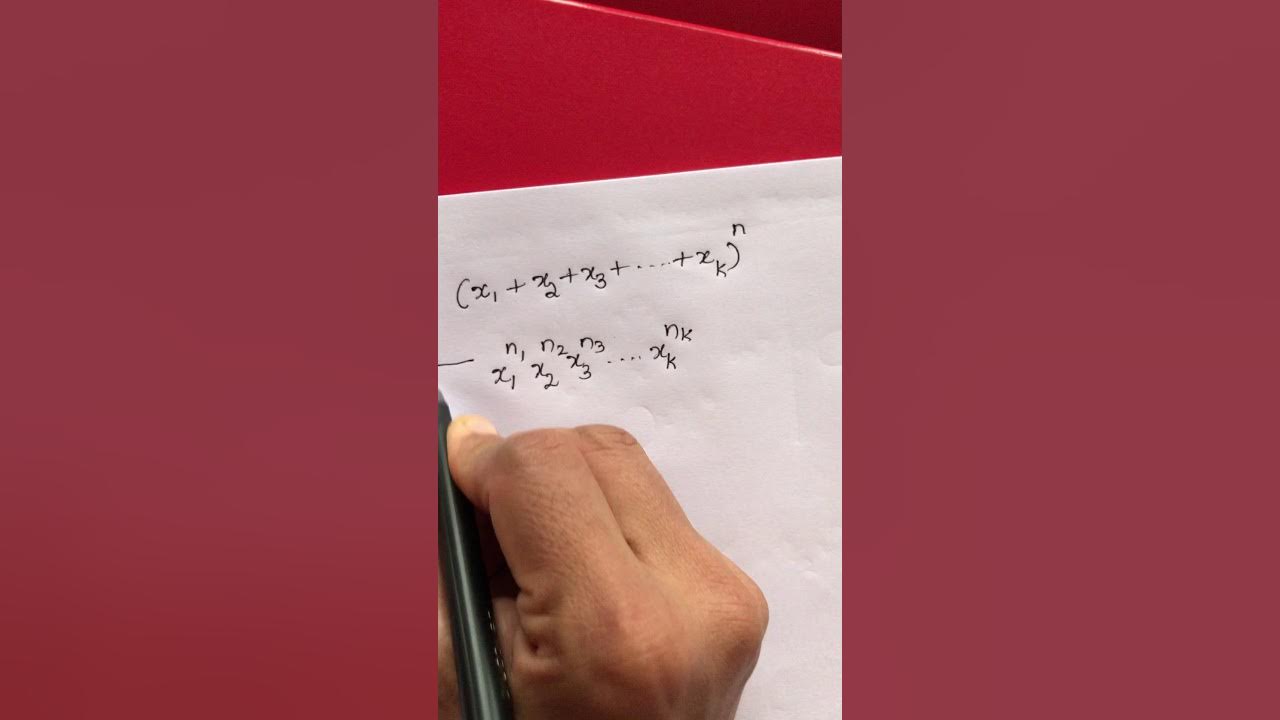 (x₁ + x₂ + x₃ + ..... + x_k)ⁿ
— x₁^n₁ x₂^n₂ x₃^n₃ ..... x_k^n_k